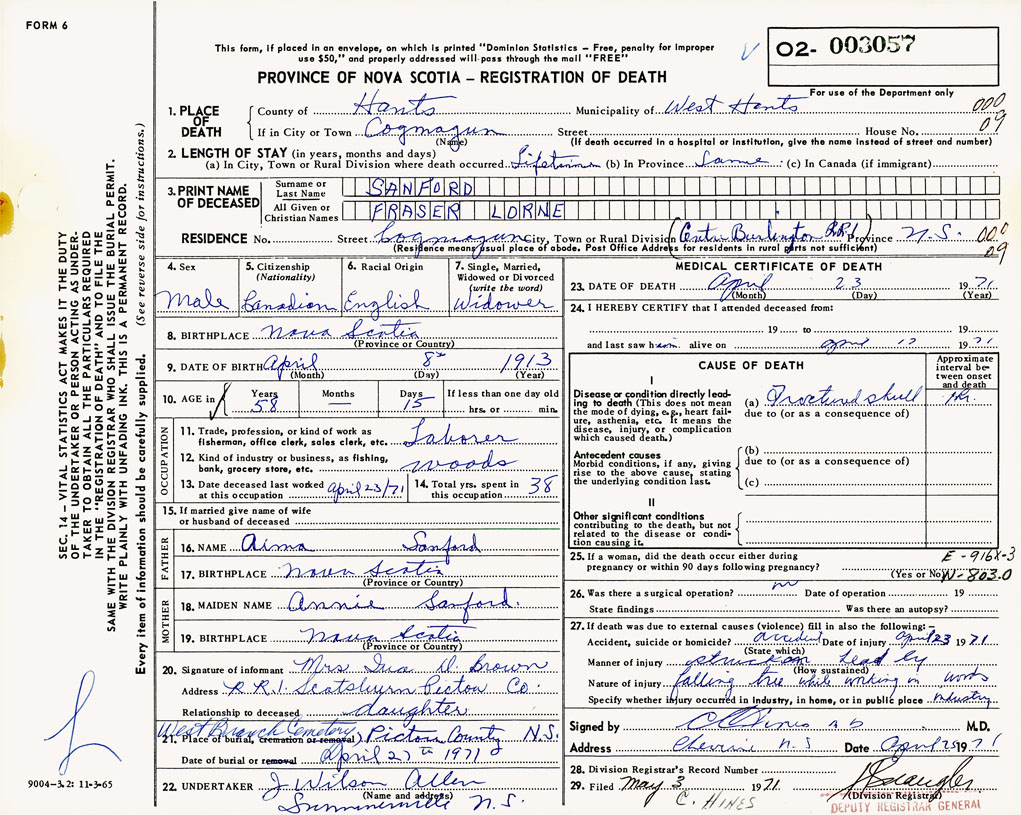 FORM 6
This form, if placed in an envelope, on which is printed "Dominion Statistics – Free, penalty for improper
use $50," and properly addressed will pass through the mail "FREE"
PROVINCE OF NOVA SCOTIA – REGISTRATION OF DEATH
O2- 003057
For use of the Department only
000
09
1. PLACE OF DEATH
County of Hants Municipality of West Hants
If in City or Town Cogmagun Street House No.
(Name) (If death occurred in a hospital or institution, give the name instead of street and number)
2. LENGTH OF STAY (in years, months and days)
(a) In City, Town or Rural Division where death occurred Lifetime (b) In Province Same (c) In Canada (if immigrant)
3. PRINT NAME OF DECEASED
Surname or Last Name SANFORD
All Given or Christian Names FRASER LORNE
RESIDENCE No. Street Cogmagun City, Town or Rural Division (Centre Burlington R.R.1) Province N.S. 000
09
(Residence means usual place of abode. Post Office Address for residents in rural parts not sufficient)
4. Sex Male
5. Citizenship (Nationality) Canadian
6. Racial Origin English
7. Single, Married, Widowed or Divorced (write the word) Widower
8. BIRTHPLACE Nova Scotia
(Province or Country)
9. DATE OF BIRTH April 8th 1913
(Month) (Day) (Year)
10. AGE in Years 58 Months — Days 15 If less than one day old
hrs. or min.
OCCUPATION
11. Trade, profession, or kind of work as fisherman, office clerk, sales clerk, etc. Laborer
12. Kind of industry or business, as fishing, bank, grocery store, etc. woods
13. Date deceased last worked at this occupation April 23/71
14. Total yrs. spent in this occupation 38
15. If married give name of wife or husband of deceased
FATHER
16. NAME Sanford
17. BIRTHPLACE Nova Scotia
(Province or Country)
MOTHER
18. MAIDEN NAME Annie Sanford.
19. BIRTHPLACE Nova Scotia
(Province or Country)
20. Signature of informant Mrs. Ina D. Brown
Address R.R.1. Scotsburn Pictou Co.
Relationship to deceased daughter
West Branch Cemetery
21. Place of burial, cremation or removal) Pictou County N.S.
Date of burial or removal April 27th 1971
22. UNDERTAKER J Wilson Allen
(Name and address)
Summerville N.S.
MEDICAL CERTIFICATE OF DEATH
23. DATE OF DEATH April 23 1971
(Month) (Day) (Year)
24. I HEREBY CERTIFY that I attended deceased from:
19 to 19
and last saw him alive on April 1971
CAUSE OF DEATH
Approximate interval between onset and death
I
Disease or condition directly leading to death (This does not mean the mode of dying, e.g., heart failure, asthenia, etc. It means the disease, injury, or complication which caused death.)
(a) Fractured skull
due to (or as a consequence of)
Antecedent causes
Morbid conditions, if any, giving rise to the above cause, stating the underlying condition last.
(b)
due to (or as a consequence of)
(c)
II
Other significant conditions
contributing to the death, but not related to the disease or condition causing it.
25. If a woman, did the death occur either during
pregnancy or within 90 days following pregnancy?
(Yes or No)
E-916X-3
N-803.0
26. Was there a surgical operation? no Date of operation 19
State findings Was there an autopsy?
27. If death was due to external causes (violence) fill in also the following:–
Accident, suicide or homicide? accident Date of injury April 23 1971
(State which)
Manner of injury struck on head by
(How sustained)
Nature of injury falling tree while working in woods
Specify whether injury occurred in industry, in home, or in public place industry
Signed by M.D.
Address Cheverie N.S Date April 1971
28. Division Registrar's Record Number
29. Filed May 3 1971
C. HINES
(Division Registrar)
DEPUTY REGISTRAR GENERAL
SEC. 14 – VITAL STATISTICS ACT MAKES IT THE DUTY
OF THE UNDERTAKER OR PERSON ACTING AS UNDER-
TAKER TO OBTAIN ALL THE PARTICULARS REQUIRED
IN THE "REGISTRATION OF DEATH" AND TO FILE THE
SAME WITH THE DIVISION REGISTRAR WHO SHALL ISSUE THE BURIAL PERMIT.
WRITE PLAINLY WITH UNFADING INK. THIS IS A PERMANENT RECORD.
Every item of information should be carefully supplied. (See reverse side for instructions.)
9004-3.2: 11-3-65